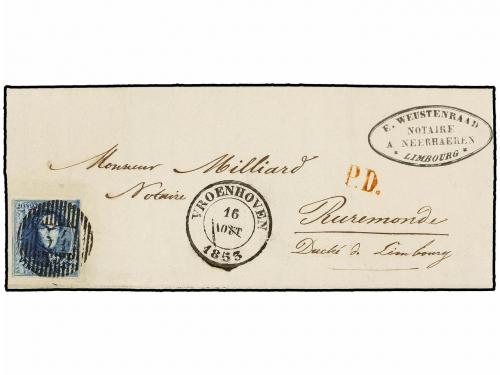 E. WEUSTENRAAD
NOTAIRE
A NEERHAEREN
* LIMBOURG *
Monsieur Milliard
Notaire
P.D.
VROENHOVEN
16
AOUT
1853
Ruremonde
Duché de Limbourg